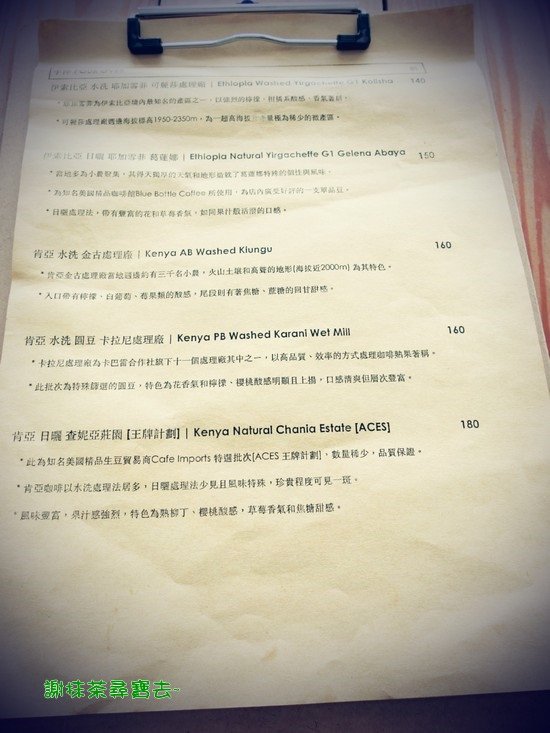 伊索比亞 水洗 耶加雪菲 可麗莎處理廠 | Ethiopia Washed Yirgacheffe G1 Kolisha 140
* 耶加雪菲為伊索比亞境內最知名的產區之一，以強烈的檸檬、柑橘系酸感、香氣著稱。
* 可麗莎處理廠週邊海拔標高1950-2350m，為一超高海拔且產量極為稀少的微產區。
伊索比亞 日曬 耶加雪菲 葛蓮娜 | Ethiopia Natural Yirgacheffe G1 Gelena Abaya 150
* 當地多為小農聚集，其得天獨厚的天氣和地形造就了葛蓮娜特殊的個性與風味。
* 為知名美國精品咖啡館Blue Bottle Coffee 所使用，為店內廣受好評的一支單品豆。
* 日曬處理法，帶有豐富的花和草莓香氣，如同果汁般活潑的口感。
肯亞 水洗 金古處理廠 | Kenya AB Washed Kiungu 160
* 肯亞金古處理廠當地週邊約有三千名小農，火山土壤和高聳的地形(海拔近2000m) 為其特色。
* 入口帶有檸檬、白葡萄、莓果類的酸感，尾段則有著焦糖、蔗糖的回甘甜感。
肯亞 水洗 圓豆 卡拉尼處理廠 | Kenya PB Washed Karani Wet Mill 160
* 卡拉尼處理廠為卡巴雷合作社旗下十一個處理廠其中之一，以高品質、效率的方式處理咖啡熟果著稱。
* 此批次為特殊篩選的圓豆，特色為花香氣和檸檬、櫻桃酸感明顯且上揚，口感清爽但層次豐富。
肯亞 日曬 查妮亞莊園 [王牌計劃] | Kenya Natural Chania Estate [ACES] 180
* 此為知名美國精品生豆貿易商Cafe Imports 特選批次[ACES 王牌計劃]、數量稀少，品質保證。
* 肯亞咖啡以水洗處理法居多，日曬處理法少見且風味特殊，珍貴程度可見一斑。
* 風味豐富，果汁感強烈，特色為熱柳丁、櫻桃酸感，草莓香氣和焦糖甜感。
謝抹茶尋寶去~